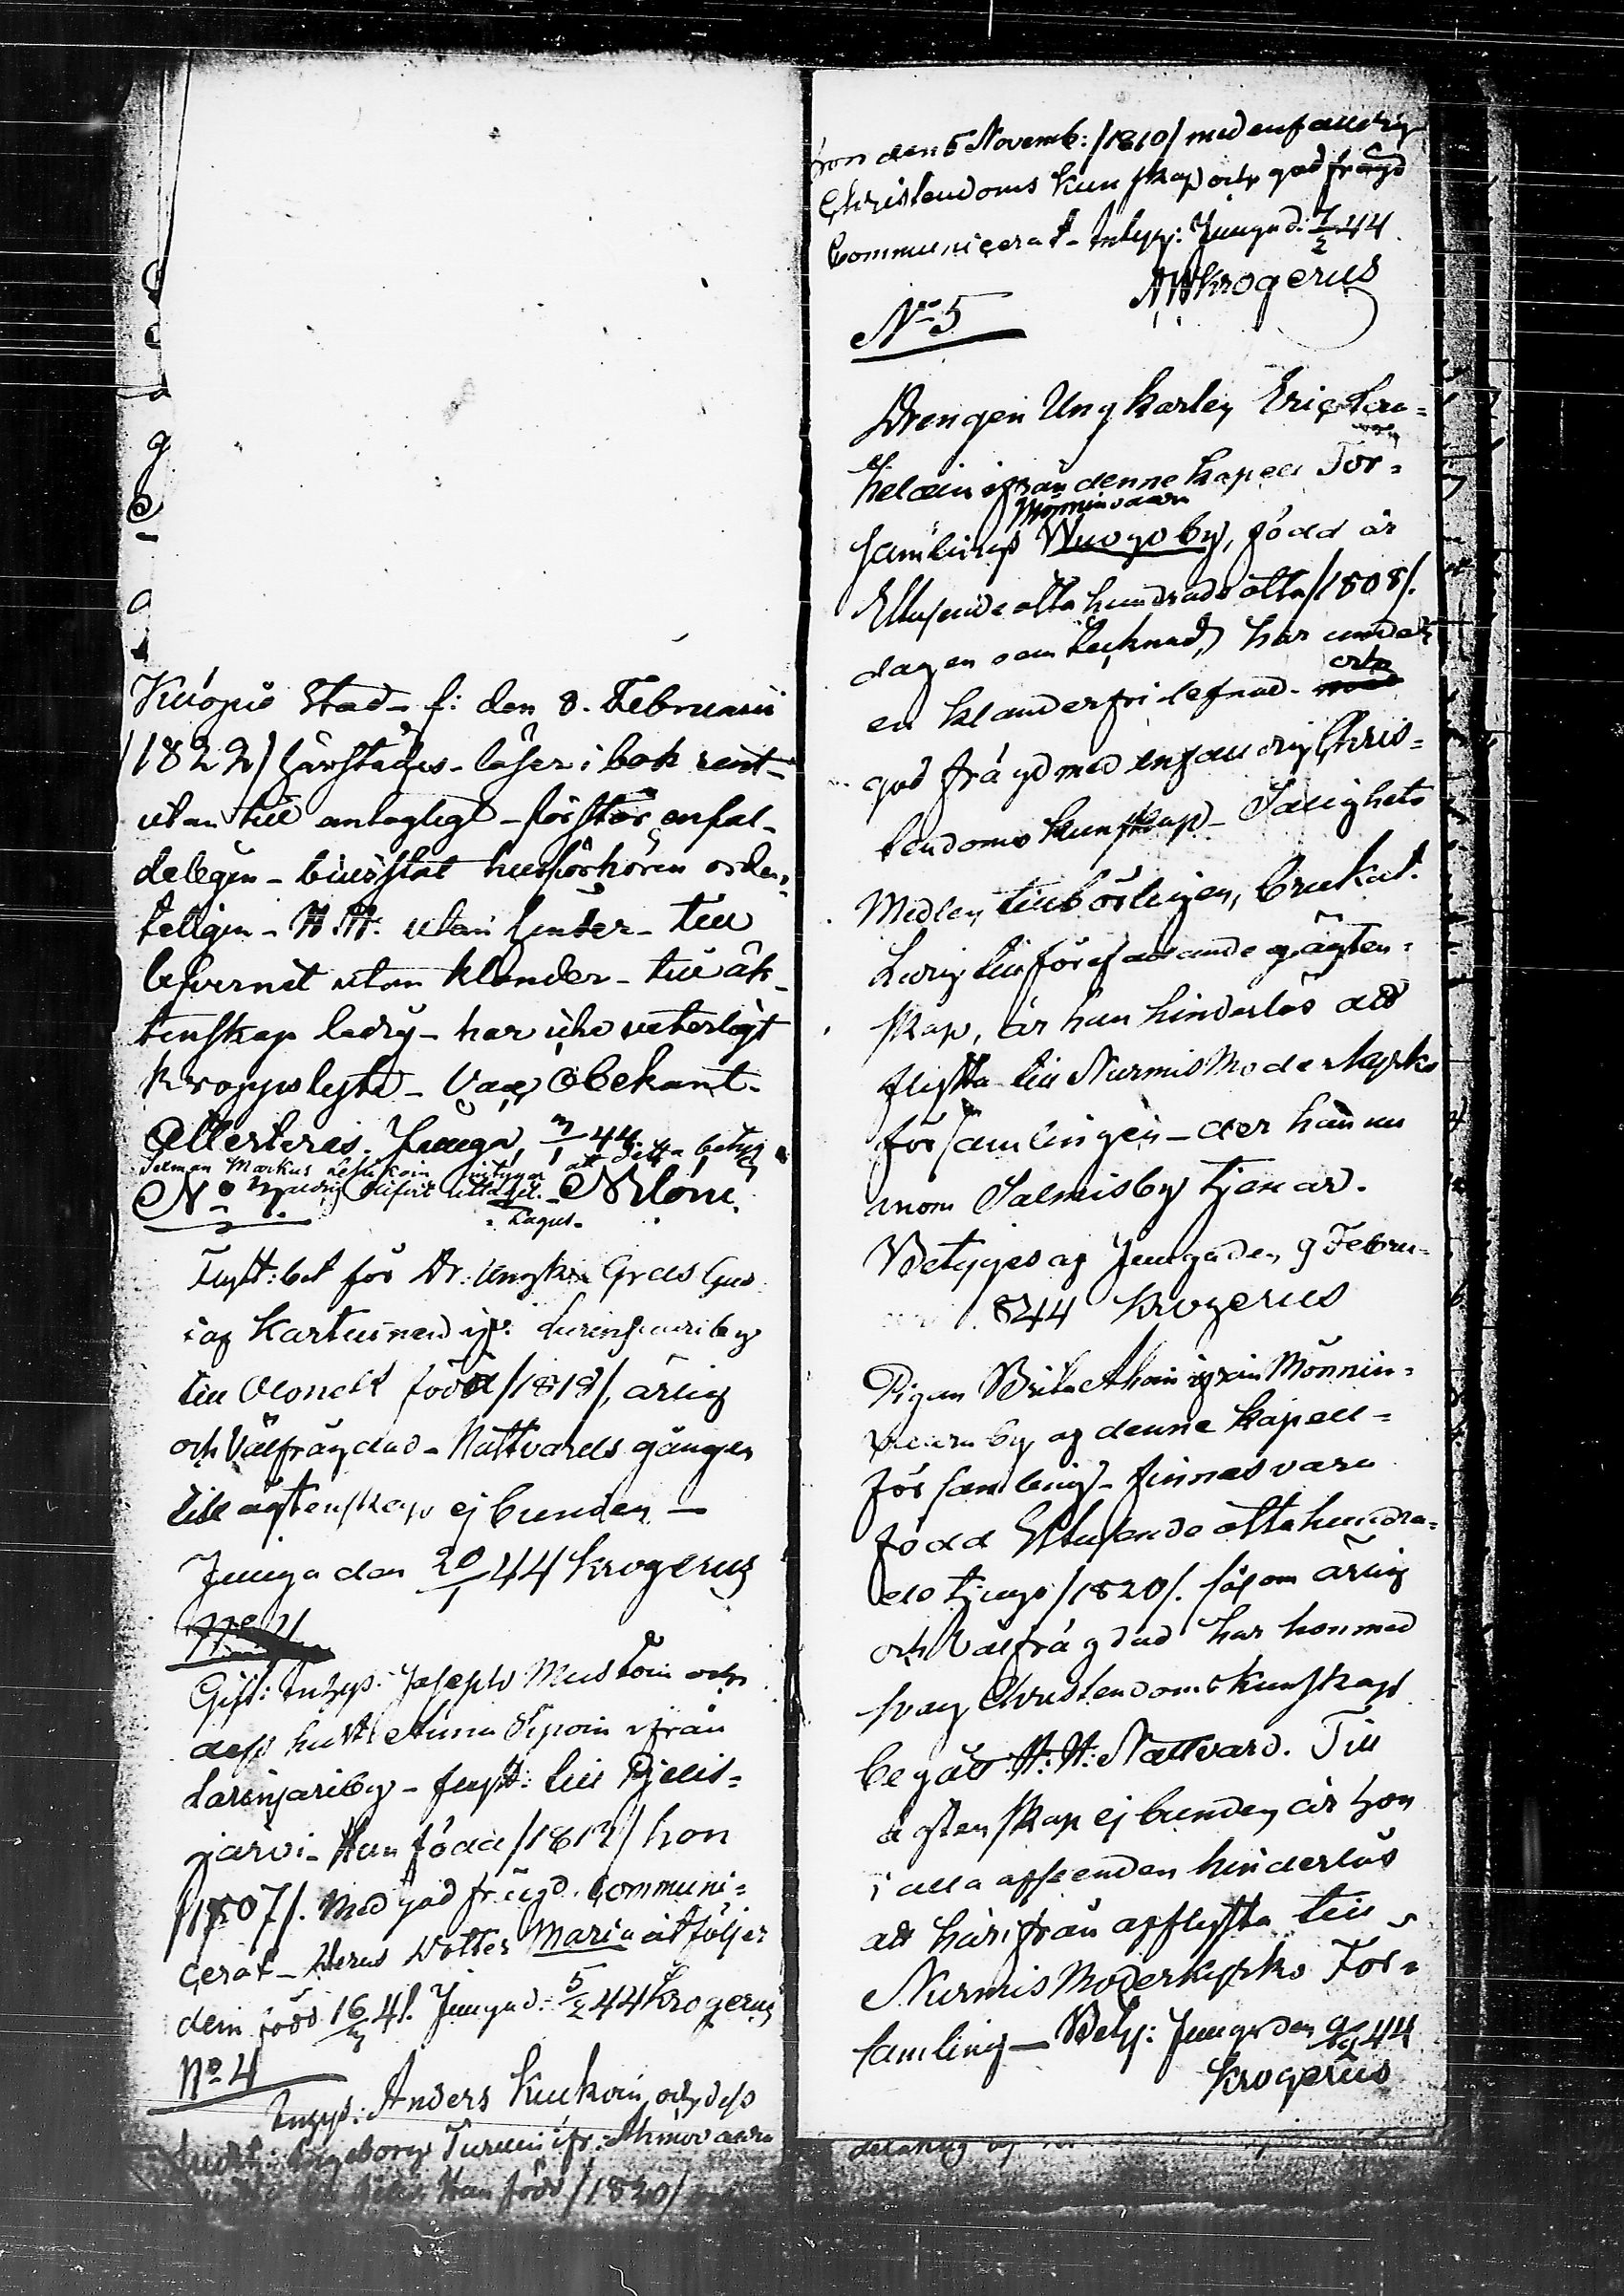 Kuopio Stad - f: den 8. Februarii
/1822/ härstädes - läser i bok rent -
utan till antagligt - förstår enfal-
deligen - biusstat husförhören orden-
teligen - H. H. utan hinder - till
lefvernet utan klander - till äk-
tenskap ledig - har icke veterligt
kroppslyte - Vacc Obekant.
Attesteras. Juuga, 44.
att detta betyg
Markus intygar
No
Lagus.
Flytt: bet för Dr: Ungk:
Kartuinen ifr: by
till född /1818/, ärlig
och Välfrägdad - Nattvards gången
till ägtenskap ej bunden —
Juuga den 20/1 44 Krogerus
Gift: Inhys: Joseph Mustoin och
dess hust: Anna ifrån
by - flytt: till Pjelis=
järvi - Han född /1817/ hon
/1807/. Med god frägd. Communi=
cerat - Deras dotter Maria åtföljer
dem född 16 41. Juuga d: 5/2 44 Krogerus
No 4
Inhys: Anders Kuckoin, och dess
hust: Ingeborg Turuin ifr: Ahmovaara
Han född /1820/
hon den 5 Novemb: /1810/ med enfaldig
Christendoms kunskap och god frägd
Communicerat - Intyg: Juuga d: 7/2 44
AWKrogerus
No 5
Drengen Ungkarlen Eric
ifrån denne kapell För=
Mönninvaara
samlings by, född år
Ettusende åtta hundrade åtta /1808/.
dagen oantecknad, har under
och
en klanderfri lefnad
god frägd med enfaldig Chris=
tendoms kunskap - Salighets
Medlen tillbörligen, brukat.
Ledig till förefallande ägten=
skap, är han hinderlös att
flytta till Nurmis Moderkyrko
församlingen - der han nu
inom Salmis by tjenar.
Betygas af Juuga den 9 Febru=
844 Krogerus
Pigan Brita Ahoin ifrån Mönnin=
vaara by af denne kapell=
församling - finnes vara
född Ettusende åtta hundra=
de tjugo /1820/. såsom ärlig
och Välfrägdad har hon med
svag Christendoms kunskap
begått H: H: Nattvard. Till
ägtenskap ej bunden är hon
i alla afseenden hinderlös
att härifrån afflytta till
Nurmis Moderkyrko För=
samling — Bety: Juuga den 9/2 44
Krogerus